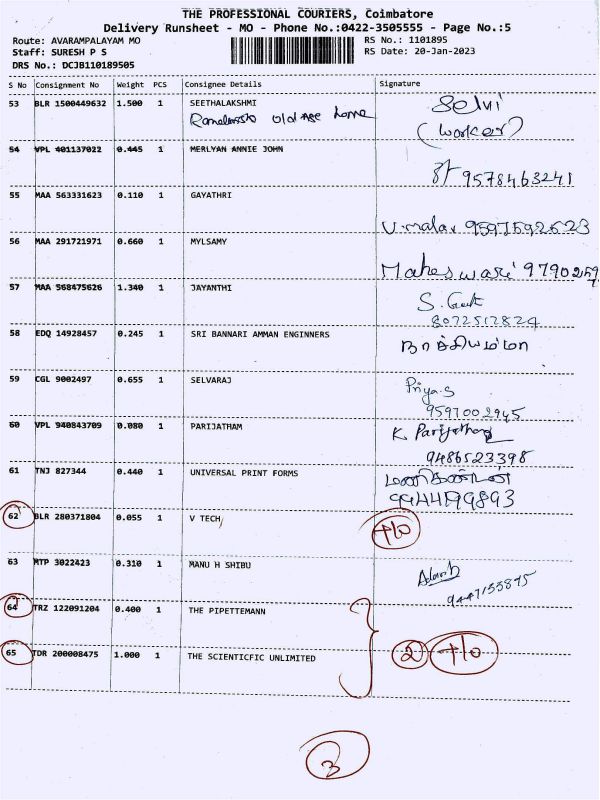 THE PROFESSIONAL COURIERS, Coimbatore
Delivery Runsheet - MO - Phone No.:0422-3505555 - Page No.:5
Route: AVARAMPALAYAM MO RS No.: 1101895
Staff: SURESH P S RS Date: 20-Jan-2023
DRS No.: DCJB110189505
S No Consignment No Weight PCS Consignee Details Signature
53 BLR 1500449632 1.500 1 SEETHALAKSHMI Selvi
old Age home (worker)
54 VPL 401137022 0.445 1 MERLYAN ANNIE JOHN
9578463241
55 MAA 563331623 0.110 1 GAYATHRI
V.malar 9597592623
56 MAA 291721971 0.660 1 MYLSAMY
Maheswari
57 MAA 568475626 1.340 1 JAYANTHI
8072517824
58 EDQ 14928457 0.245 1 SRI BANNARI AMMAN ENGINNERS
நாச்சியம்மா
59 CGL 9002497 0.655 1 SELVARAJ Priya.S
9597002945
60 VPL 940843709 0.080 1 PARIJATHAM K Parijatham
9486523398
61 TNJ 827344 0.440 1 UNIVERSAL PRINT FORMS மணிகண்டன்
9944199893
62 BLR 280371804 0.055 1 V TECH
63 MTP 3022423 0.310 1 MANU H SHIBU
9447155875
64 TRZ 122091204 0.400 1 THE PIPETTEMANN
65 TDR 200008475 1.000 1 THE SCIENTICFIC UNLIMITED 2
3